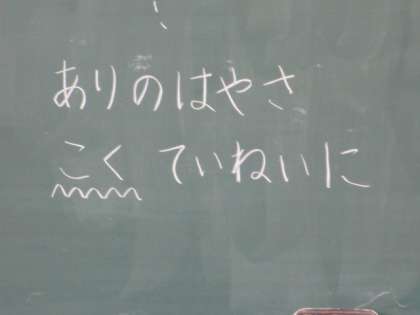 ありのはやさ
こくていねいに